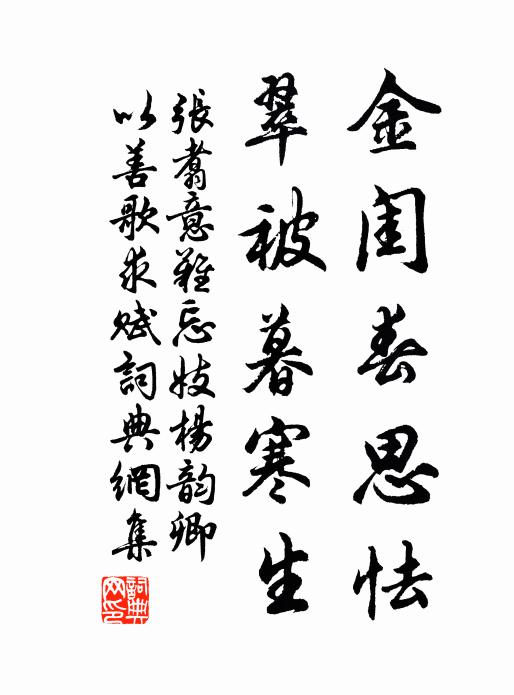 金闺春思怯
翠被暮寒生
張翥意難忘妓楊韵卿
以善歌求賦詞典網集
詞典網印